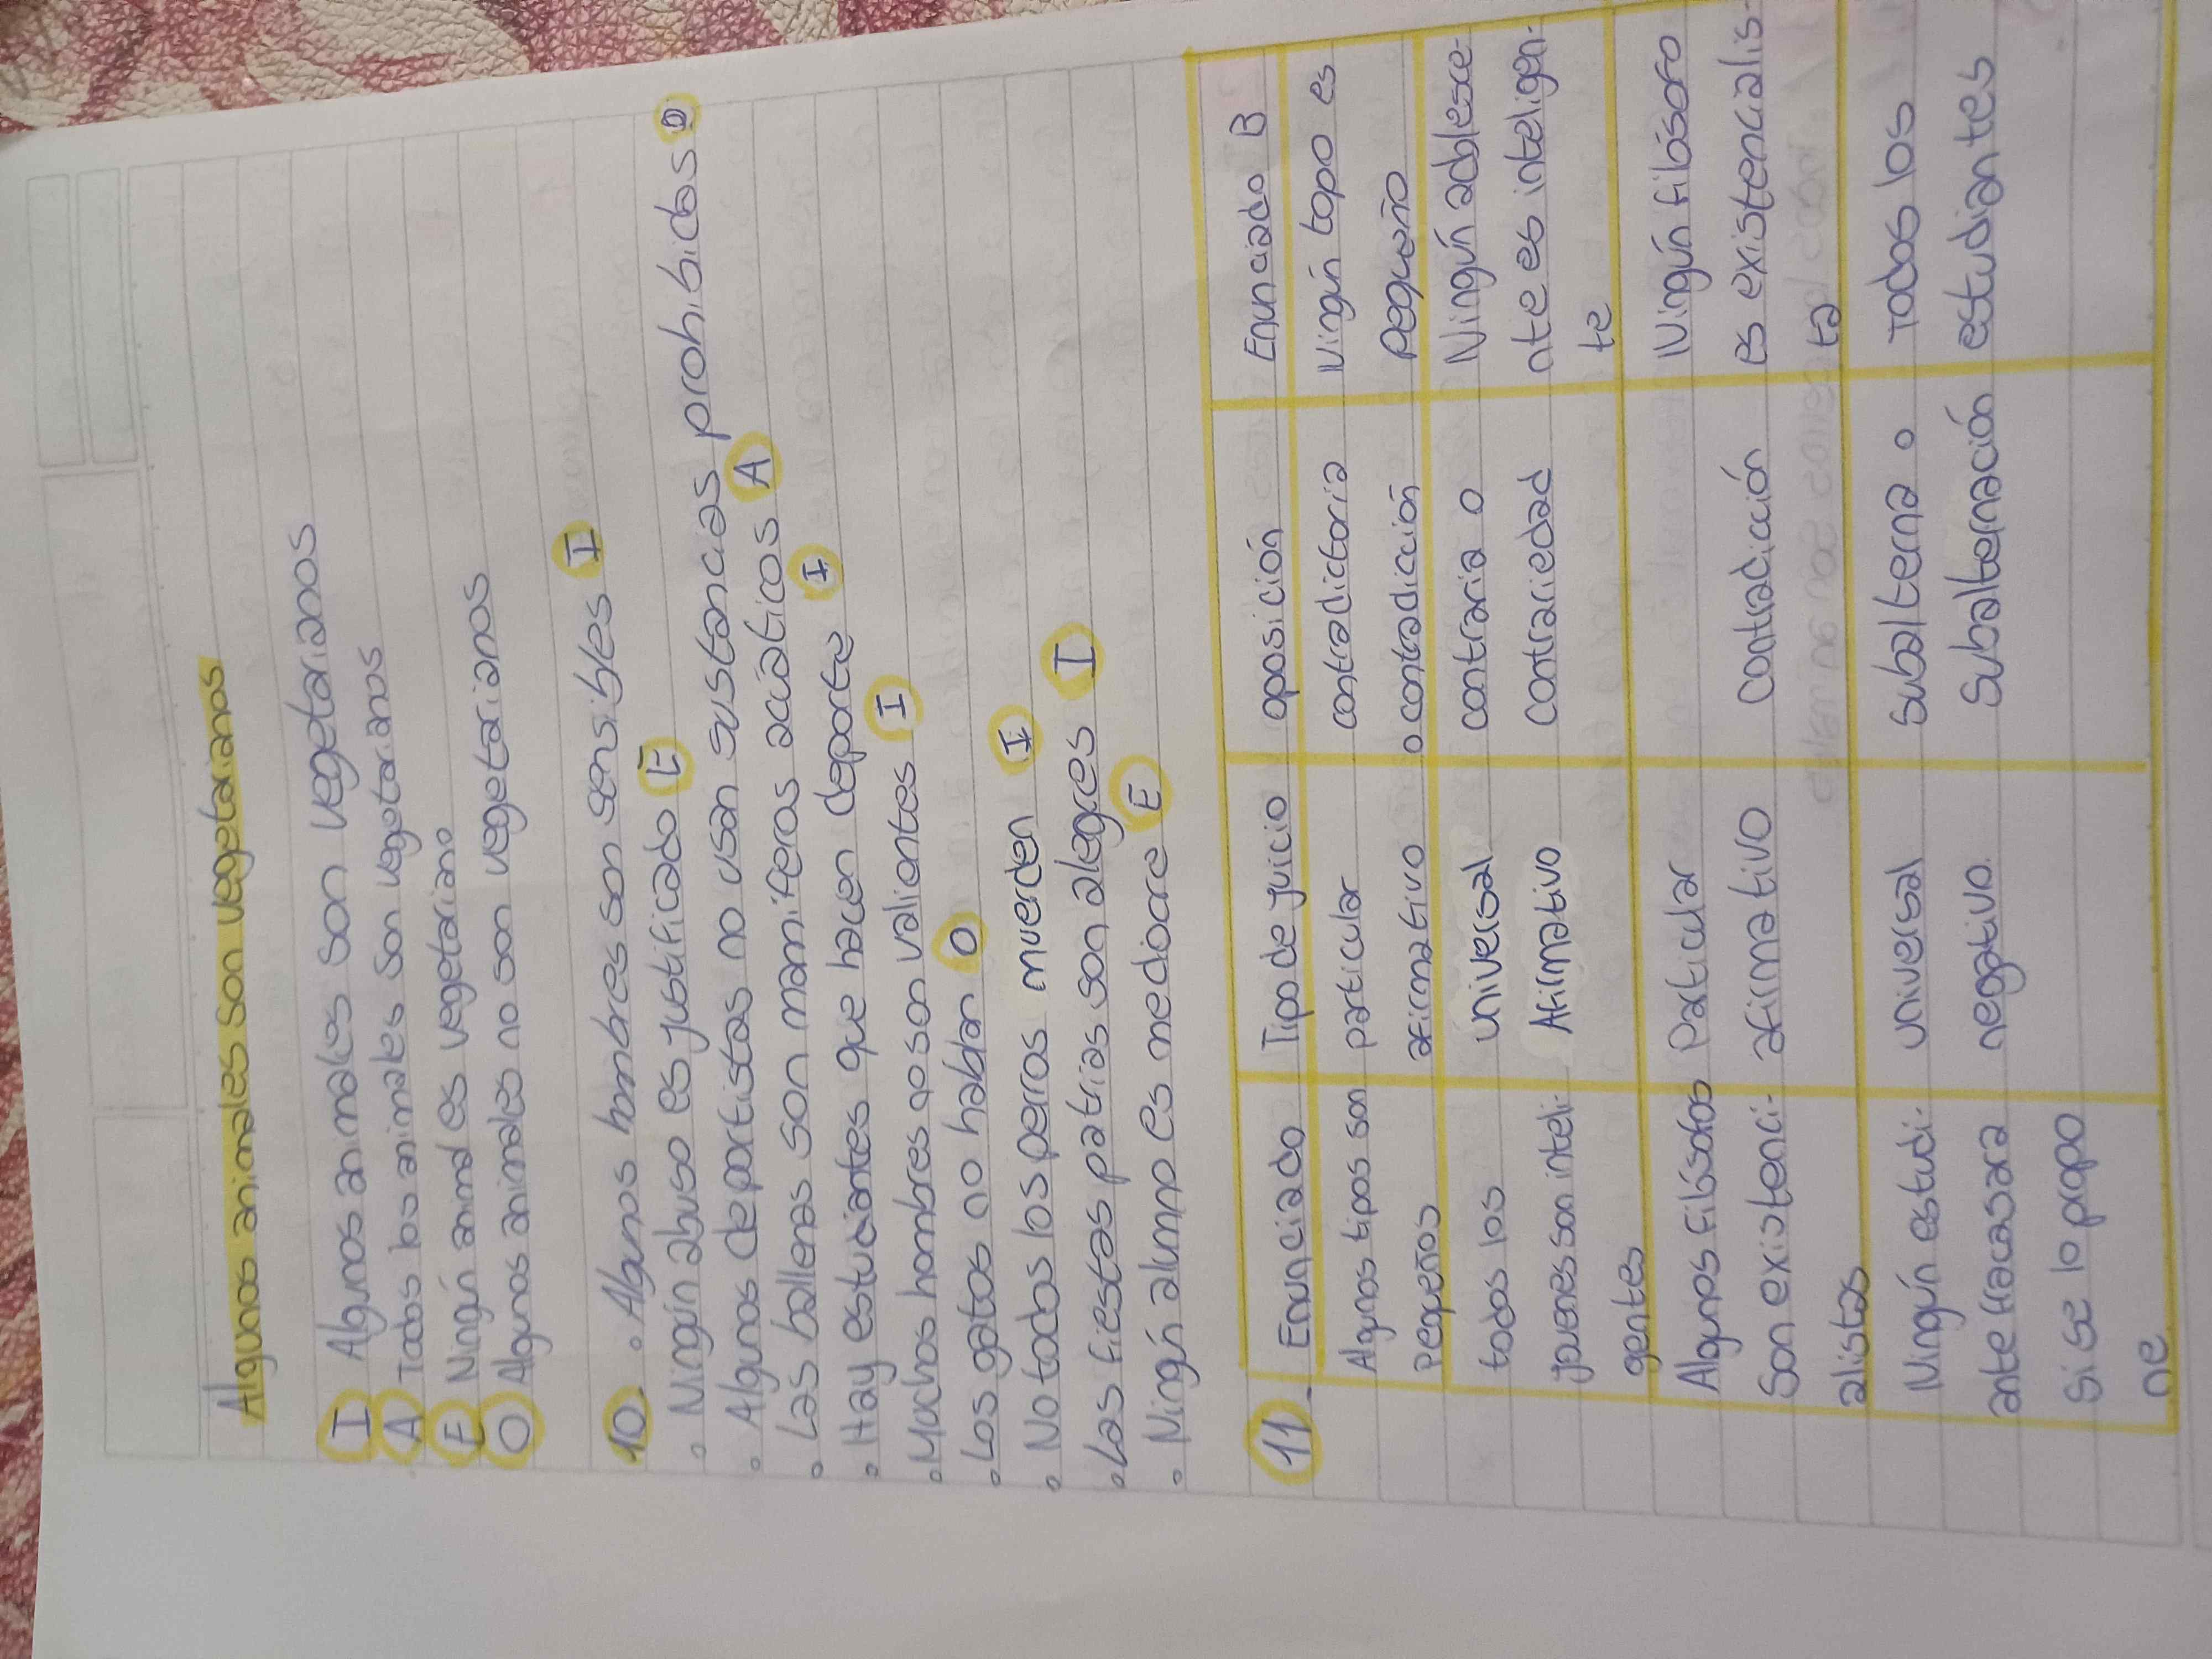 Algunos animales son vegetarianos
I Algunos animales son vegetarianos
A Todos los animales son vegetarianos
E Ningún animal es vegetariano
O Algunos animales no son vegetarianos
10. • Algunos hombres son sensibles I
• Ningún abuso es justificado E
• Algunos deportistas no usan sustancias prohibidas O
• Las ballenas son mamiferos acúaticos A
• Hay estudiantes que hacen deporte I
• Muchos hombres son valientes I
• Los gatos no hablan O
• No todos los perros muerden I
• Las fiestas patrias son alegres I
• Ningún alumno es mediocre E
11. Enunciado Tipo de juicio oposición Enunciado B
Algunos tipos son particular contradictoria Ningún topo es
pequeños afirmativo o contradicción pequeño
todos los universal contraria o Ningún adolesce-
jovenes son inteli- Afirmativo contrariedad nte es inteligen-
gentes te
Algunos filósofos Particular Ningún filósofo
Son existenci- afirmativo contradicción es existencialis-
alistas ta
Ningún estudi- universal subalterna o Todos los
ante fracasara negativo subalternación estudiantes
si se lo propo
ne